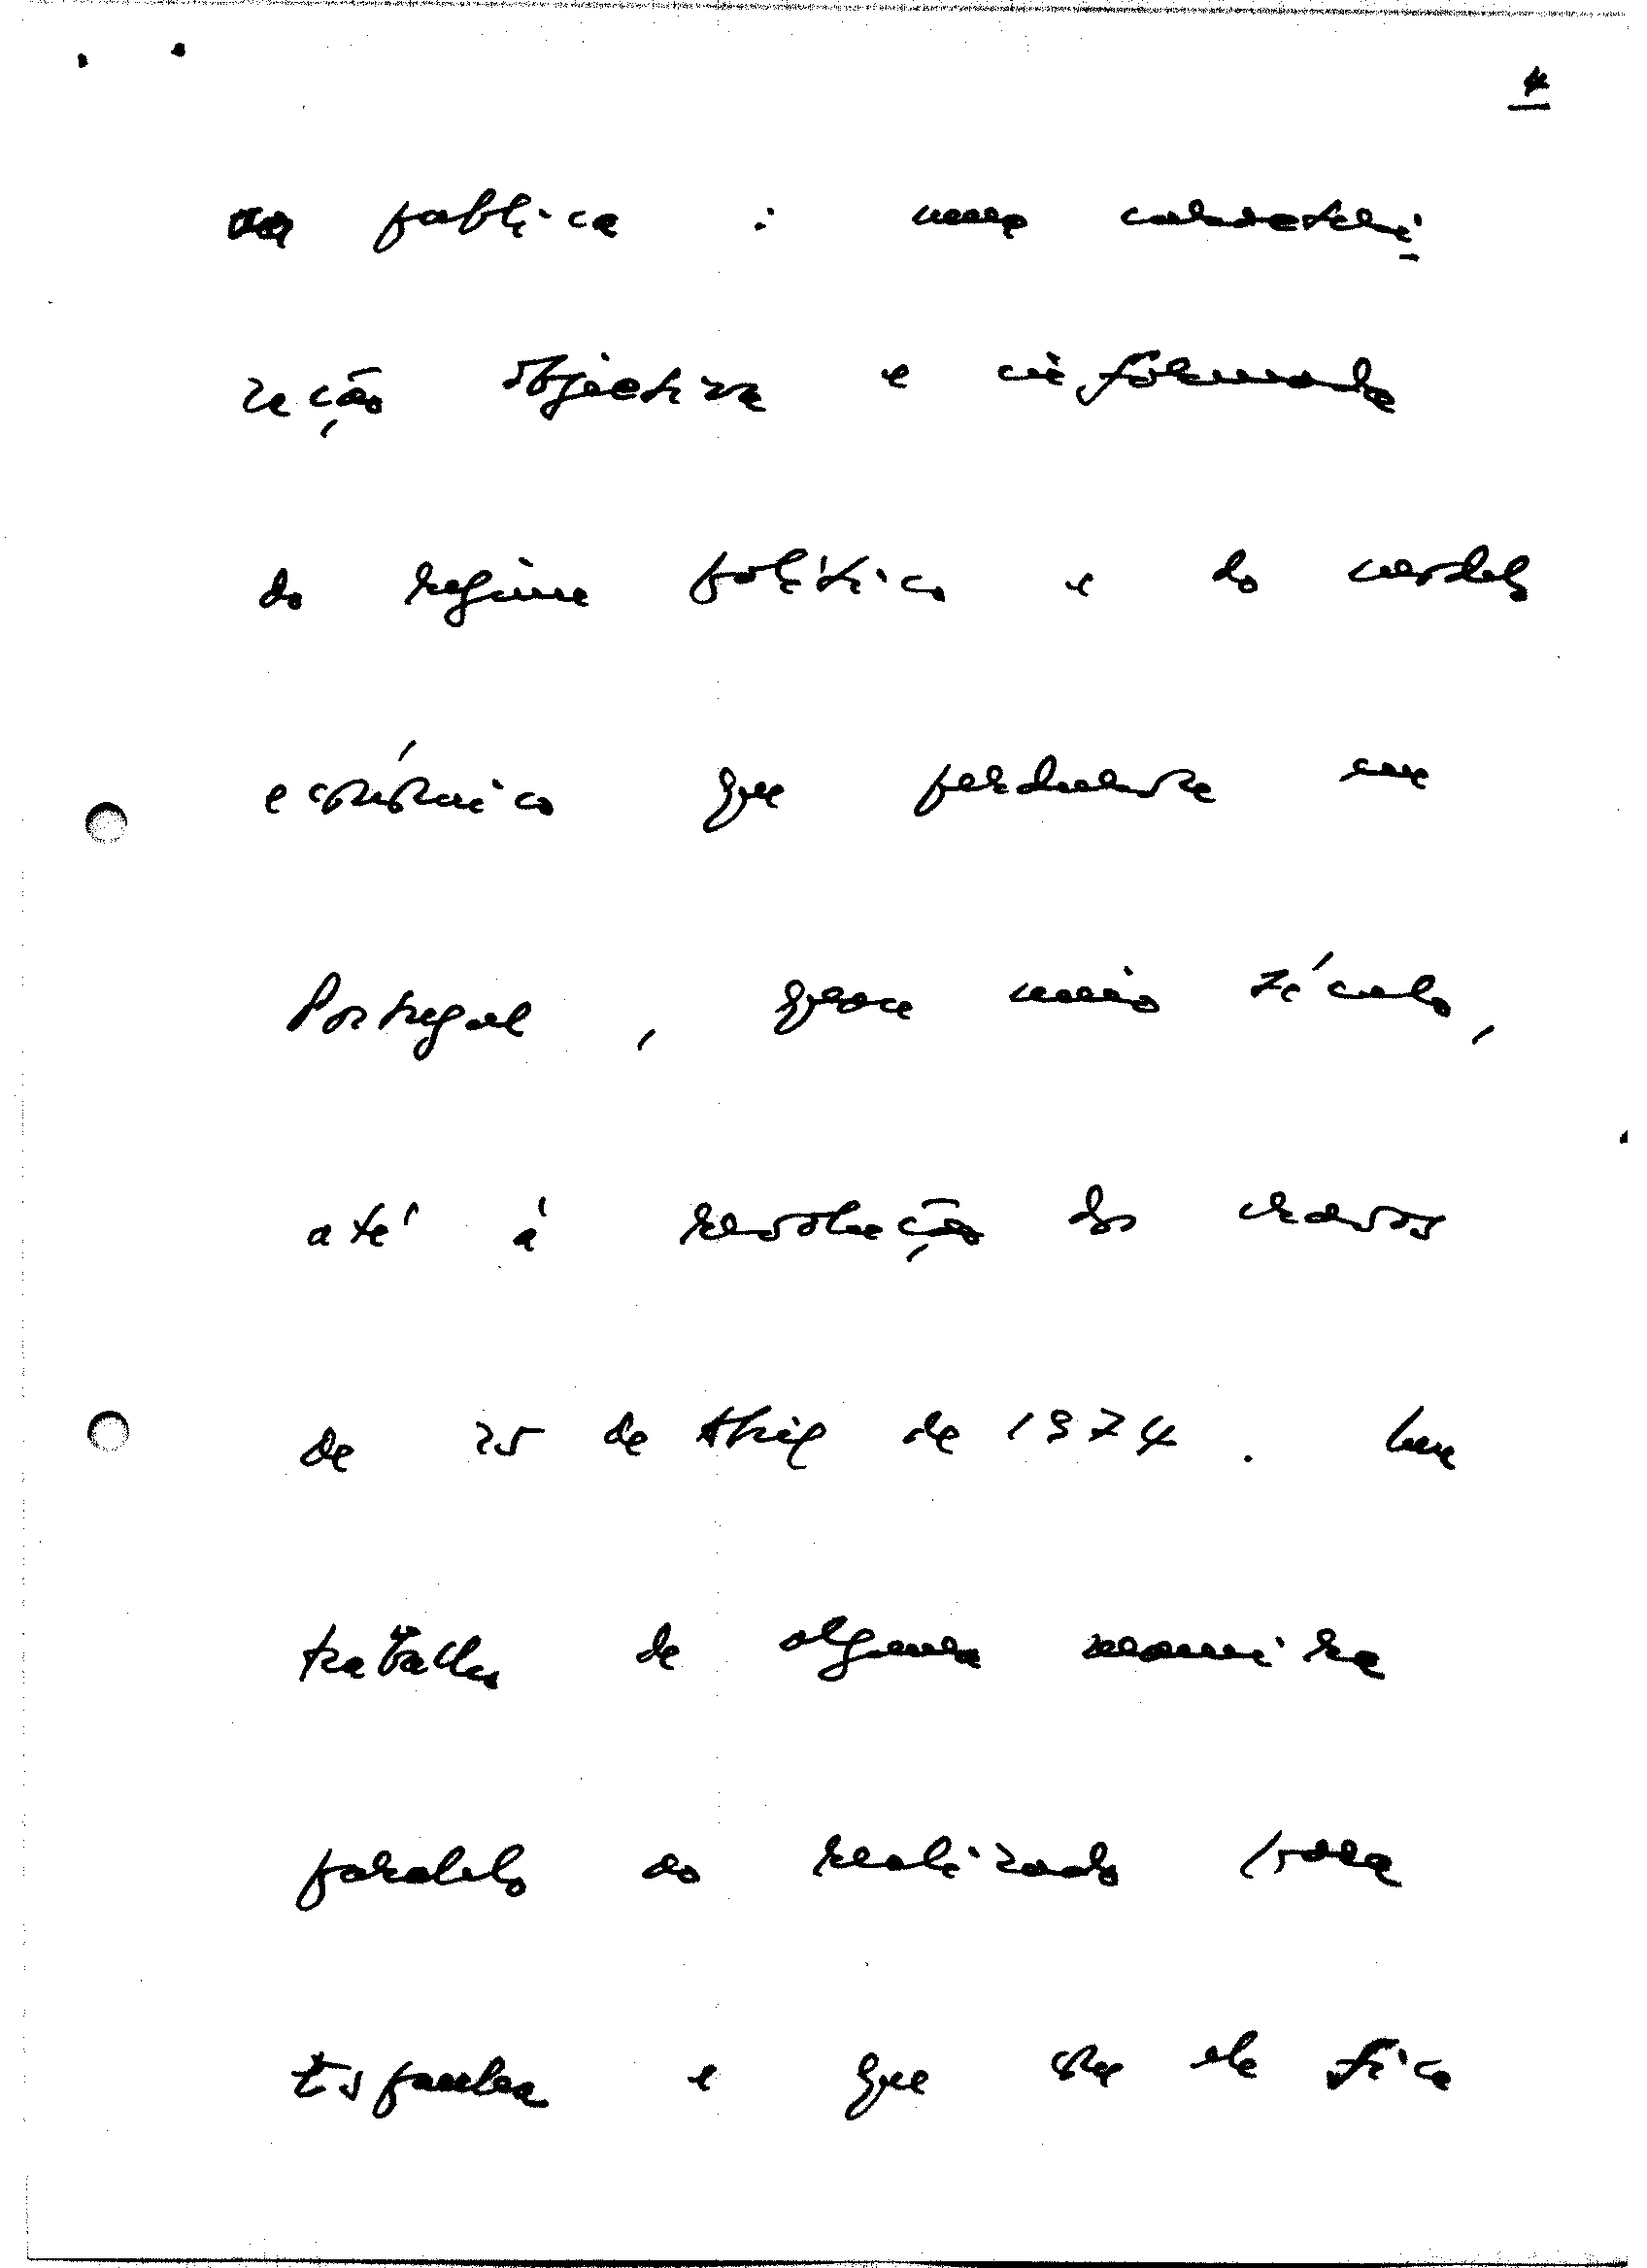 4
da pública : uma caracteri
zação objectiva e informada
do regime político e do modelo
económico que perdurou em
Portugal , quase meio século,
até à revolução dos cravos
de 25 de Abril de 1974 . Um
trabalho de alguma maneira
paralelo ao realizado para
Espanha e que com ele fica